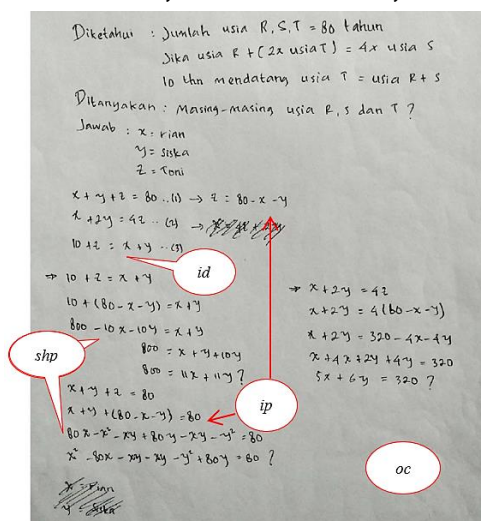 Diketahui : Jumlah usia R, S, T = 80 tahun
Jika usia R + (2x usia T) = 4x usia S
10 thn mendatang usia T = usia R + S
Ditanyakan : Masing-masing usia R, S dan T ?
Jawab : x = rian
y = siska
z = Toni
x + y + z = 80 ..(1) → z = 80 - x - y
x + 2y = 4z ..(2) →
10 + z = x + y ..(3)
id
⇒ 10 + z = x + y
10 + (80 - x - y) = x + y
800 - 10x - 10y = x + y
800 = x + y + 10y
800 = 11x + 11y ?
shp
x + y + z = 80
x + y + (80 - x - y) = 80
80x - x² - xy + 80y - xy - y² = 80
x² - 80x - xy - xy - y² + 80y = 80 ?
x = rian
y = siska
ip
⇒ x + 2y = 4z
x + 2y = 4(80 - x - y)
x + 2y = 320 - 4x - 4y
x + 4x + 2y + 4y = 320
5x + 6y = 320 ?
oc